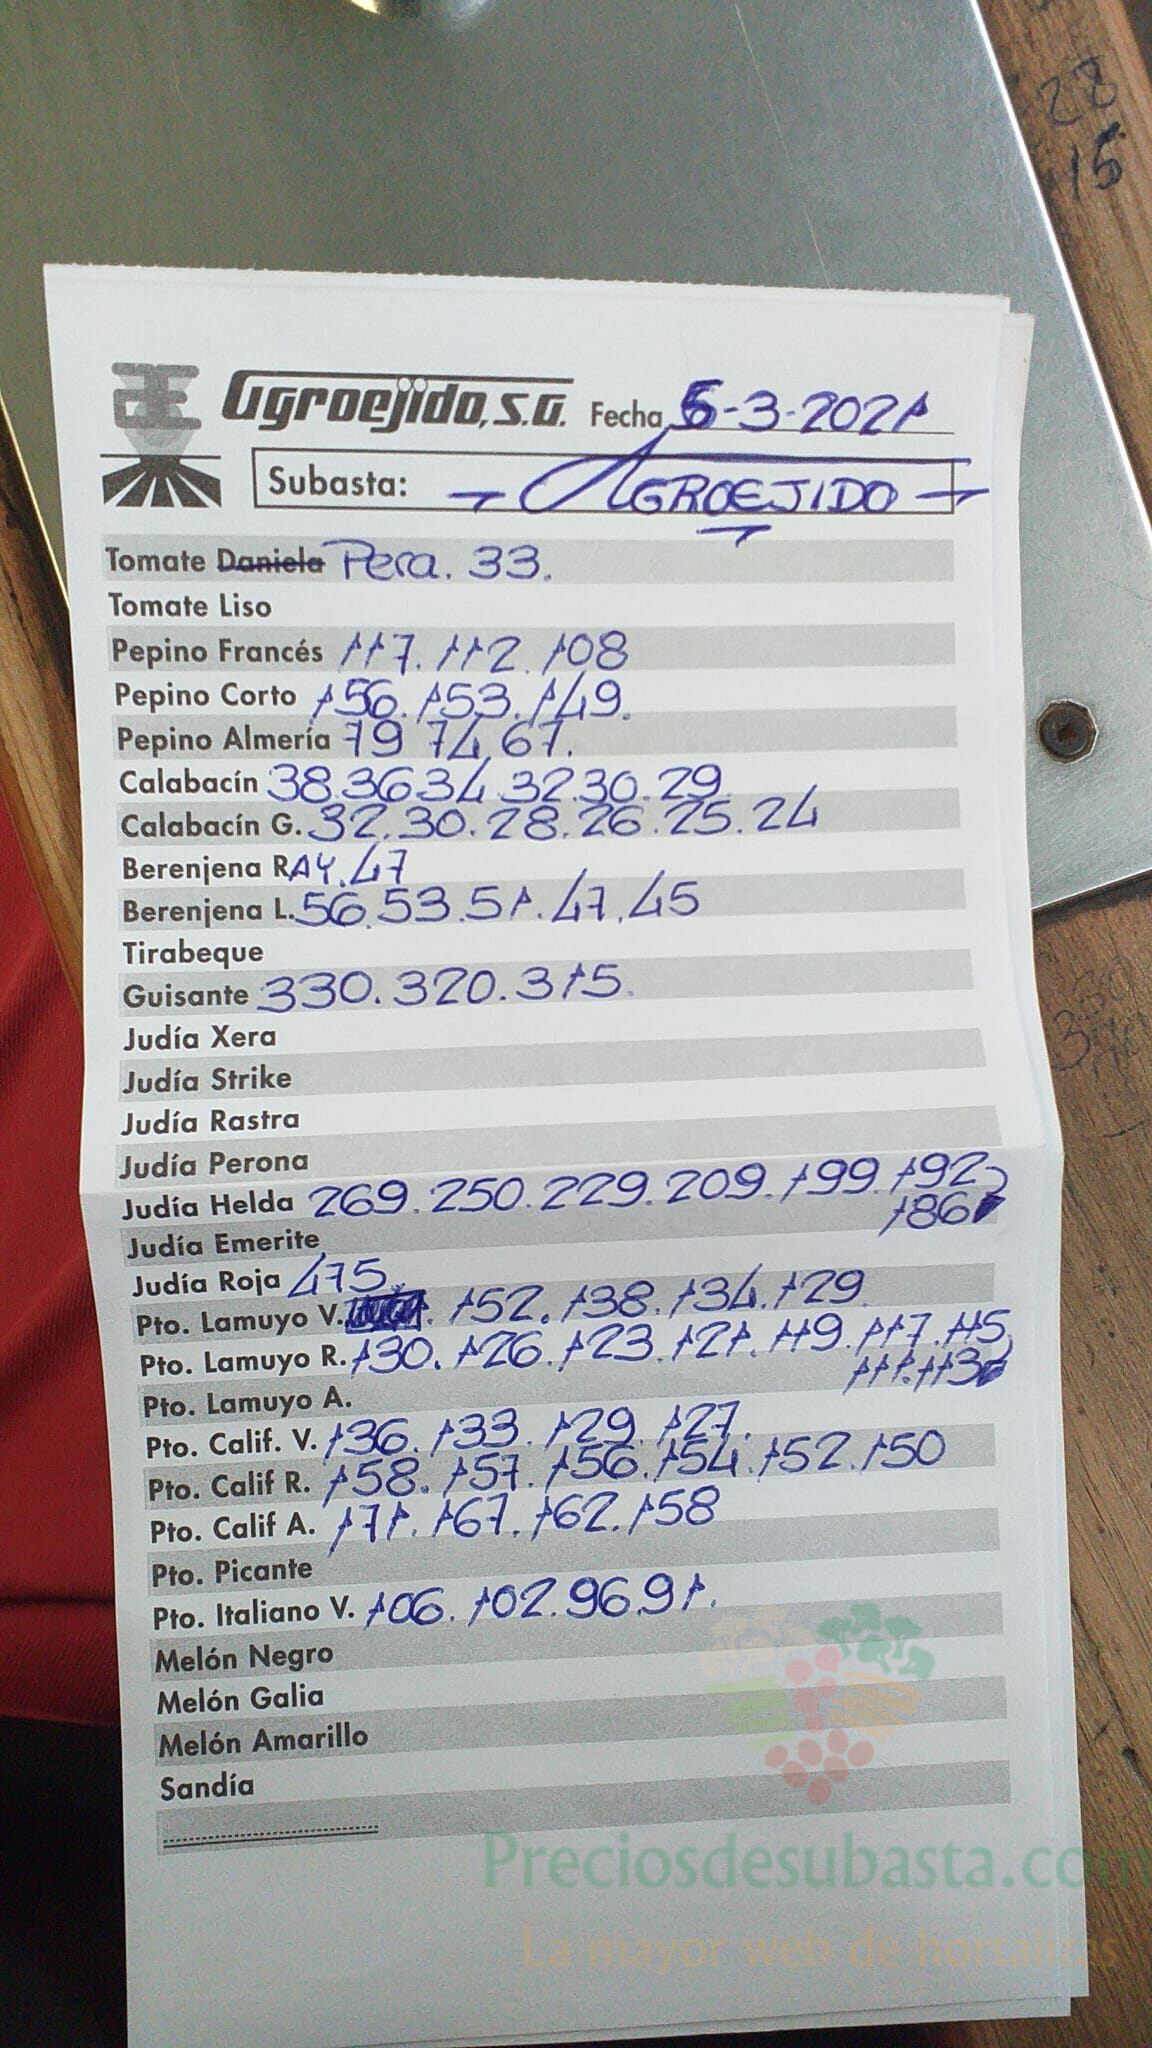 28
15
AE Agroejido, S.A. Fecha 5-3-2021
Subasta: AGROEJIDO
Tomate Daniela Pera. 33.
Tomate Liso
Pepino Francés 117. 112. 108
Pepino Corto 156. 153. 149.
Pepino Almería 79 74. 67.
Calabacín 38.36 34. 32.30. 29.
Calabacín G. 32.30. 28. 26. 25. 24
Berenjena RAY. 47
Berenjena L. 56.53.51.47.45
Tirabeque
Guisante 330. 320. 315.
Judía Xera
Judía Strike
Judía Rastra
Judía Perona
Judía Helda 269. 250. 229. 209. 199. 192
186
Judía Emerite
Judía Roja 475.
Pto. Lamuyo V. 152. 138. 134. 129.
Pto. Lamuyo R. 130. 126. 123. 121. 119. 117. 115
111. 113
Pto. Lamuyo A.
Pto. Calif. V. 136. 133. 129. 127.
Pto. Calif R. 158. 157. 156. 154. 152. 150
Pto. Calif A. 171. 167. 162. 158
Pto. Picante
Pto. Italiano V. 106. 102. 96. 91.
Melón Negro
Melón Galia
Melón Amarillo
Sandía
Preciosdesubasta.com
La mayor web de hortalizas